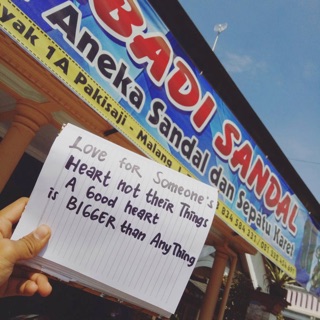 BADI SANDAL
Aneka Sandal dan Sepatu Karet
yak 1A Pakisaji - Malang
Love for Someone's
Heart not their Things
A Good heart
is BIGGER than AnyThing